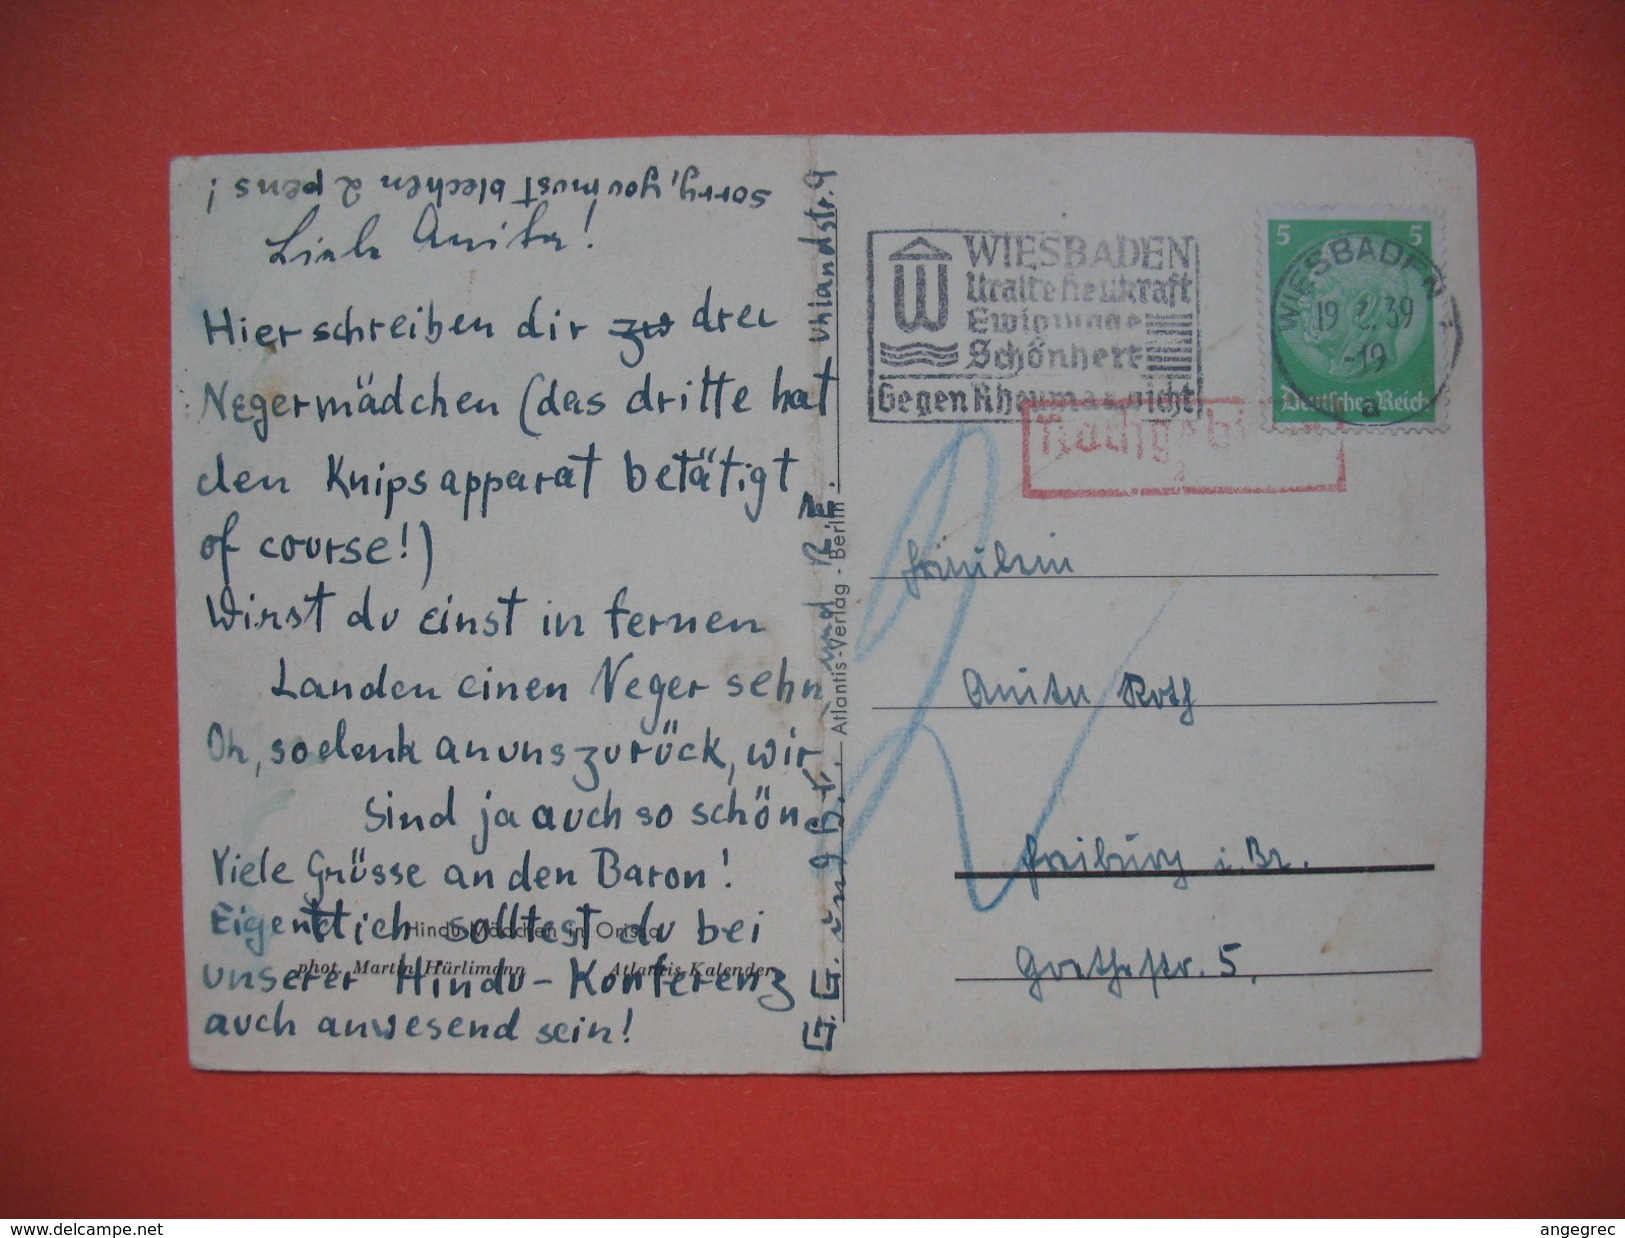 sorry, you must blechen 2 pens!
Liebe Anita!
Hier schreiben dir zw drei
Negermädchen (das dritte hat
den Knipsapparat betätigt
of course!)
Wirst du einst in fernen
Landen einen Neger sehn,
Oh, so denk an uns zurück, wir
sind ja auch so schön
Viele Grüsse an den Baron!
Eigentlich solltest du bei
unserer Hindu-Konferenz
auch anwesend sein!
Hindu-Mädchen in Orissa
phot. Martin Hürlimann Atlantis-Kalender
Uhlandstr. 9
und R.E.
Atlantis-Verlag - Berlin
WIESBADEN
Uralte Heilkraft
Ewig junge
Schönheit
Gegen Rheuma Gicht
Nachgebühr
5 5
Deutsches Reich
WIESBADEN
19.2.39
-19
a
Fräulein
Anita Roth
Freiburg i. Br.
Goethestr. 5.
www.delcampe.net
angegrec